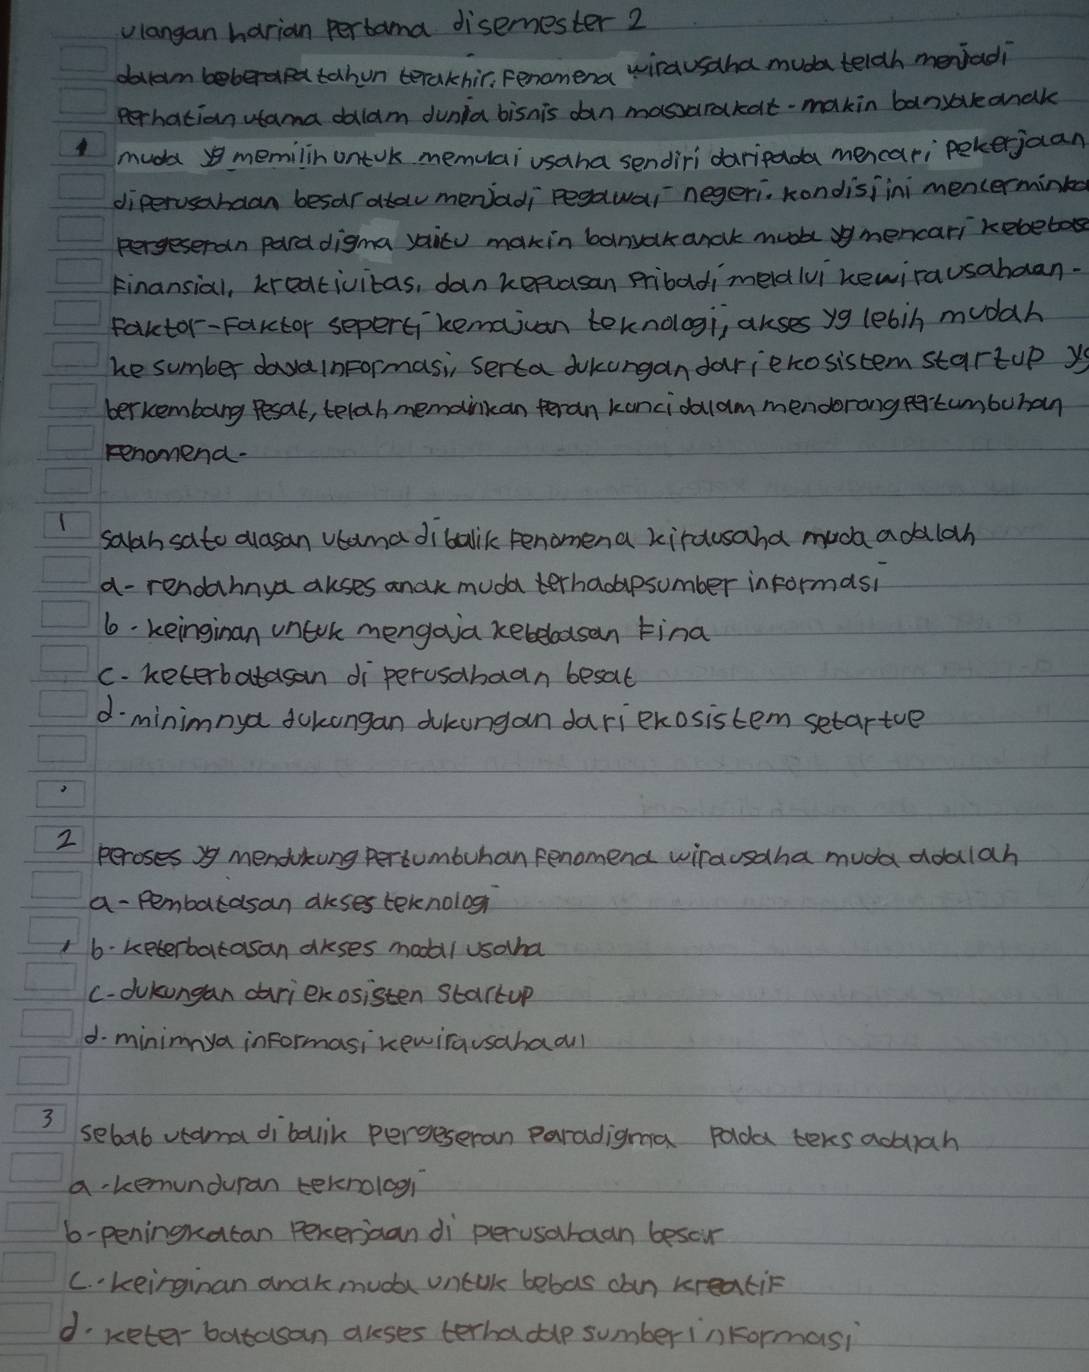 ulangan harian pertama disemester 2
dalam beberapa tahun terakhir, Fenomena wirausaha muda telah menjadi
perhatian utama dalam dunia bisnis dan masyarakat - makin banyak anak
1 muda yg memilih untuk memulai usaha sendiri daripada mencari pekerjaan
diperusahaan besar atau menjadi pegawai negeri. kondisi ini mencerminka
pergeseran paradigma yaitu makin banyak anak muda yg mencari kebebas
Finansial, kreativitas, dan kepuasan pribadi melalui kewirausahaan -
Faktor-Faktor seperti kemajuan teknologi, akses yg lebih mudah
ke sumber daya informasi, serta dukungan dari ekosistem startup yg
berkembang pesat, telah memainkan peran kunci dalam mendorong pertumbuhan
Fenomena-
1 salah satu alasan utama dibalik Fenomena kirausaha muda adalah
a- rendahnya akses anak muda terhadapsumber informasi
b. keinginan untuk mengaja kebebasan Fina
c- keterbatasan di perusahaan besat
d. minimnya dukungan dukungan dari ekosistem setartue
2 peroses yg mendukung pertumbuhan Fenomena wirausaha muda adalah
a- Pembatasan akses teknologi
b. keterbatasan akses modal usaha
c- dukungan dari ekosisten Startup
d. minimnya informasi kewirausahaal
3 sebab utama dibalik pergeseran paradigma pada teks adalah
a. kemunduran teknologi
b- peningkatan Pekerjaan di perusahaan besar
c. keinginan anak muda untuk bebas dan kreatif
d. keter batasan akses terhadap sumber informasi